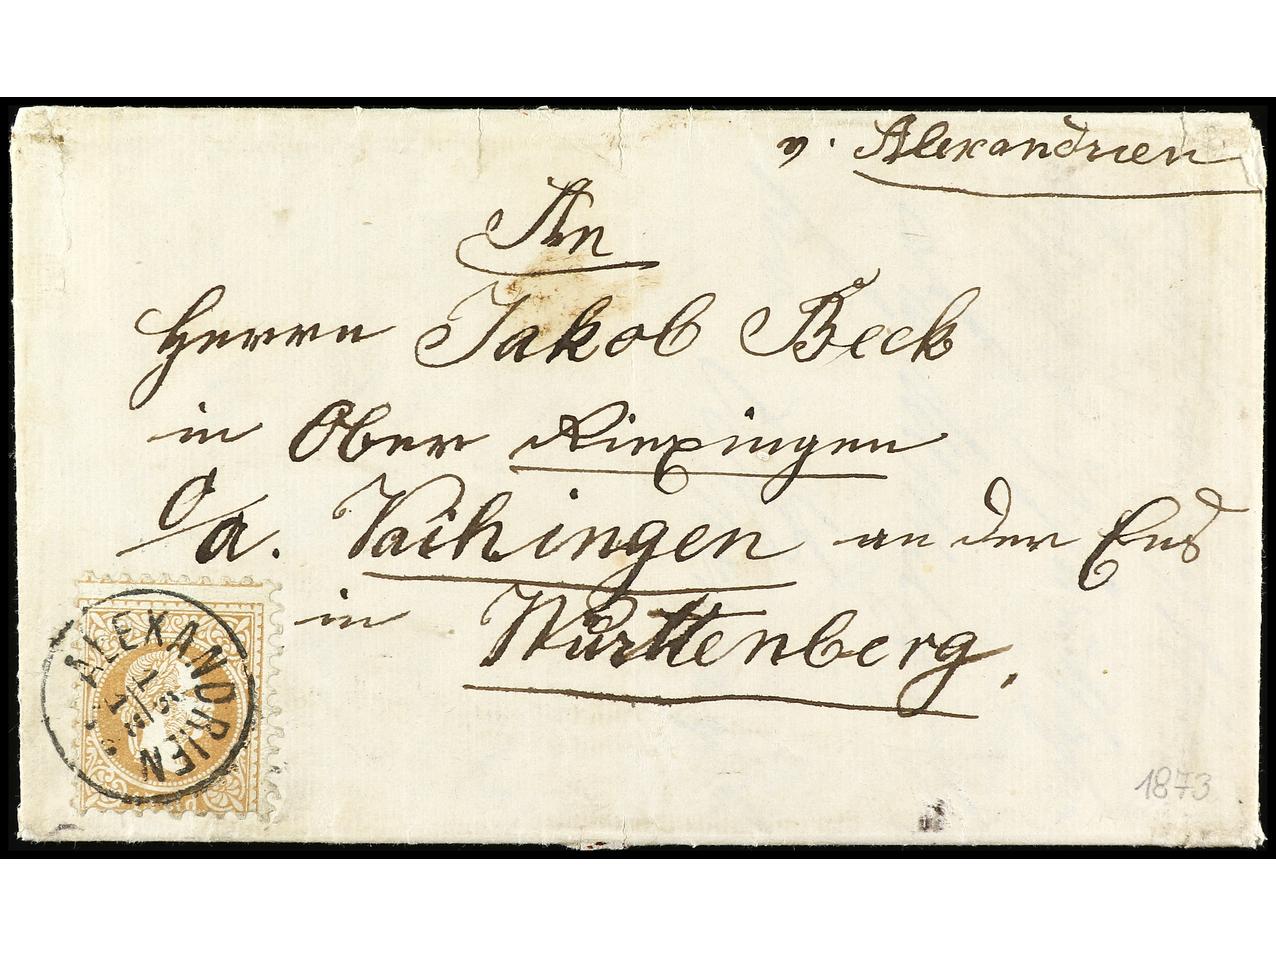 v. Alexandrien
An
Herrn Jakob Beck
in Ober Riexingen
O/a. Vaihingen an der Ens
in Württenberg.
ALEXANDRIEN
1873